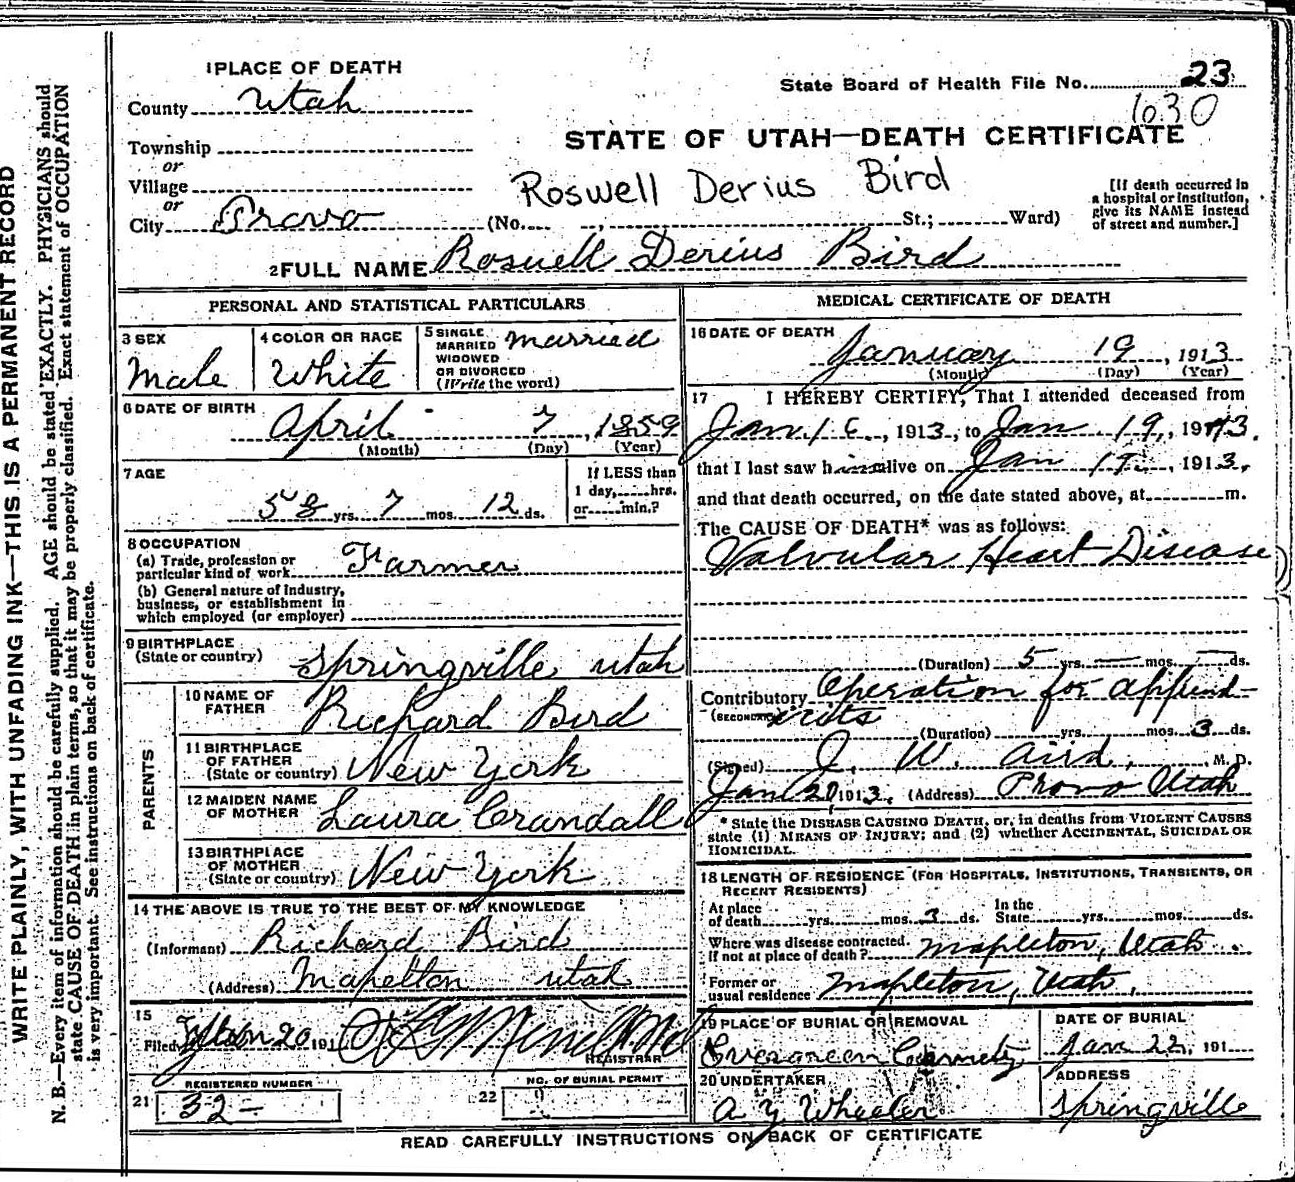 WRITE PLAINLY, WITH UNFADING INK—THIS IS A PERMANENT RECORD
N. B.—Every item of information should be carefully supplied. AGE should be stated EXACTLY. PHYSICIANS should
state CAUSE OF DEATH in plain terms, so that it may be properly classified. Exact statement of OCCUPATION
is very important. See instructions on back of certificate.
1 PLACE OF DEATH
State Board of Health File No. 23
County Utah
630
STATE OF UTAH—DEATH CERTIFICATE
Township
or
Village
Roswell Derius Bird
[If death occurred in
a hospital or institution,
give its NAME instead
of street and number.]
or
City Provo (No. , St.; Ward)
2 FULL NAME Roswell Derius Bird
PERSONAL AND STATISTICAL PARTICULARS
3 SEX
Male
4 COLOR OR RACE
White
5 SINGLE
MARRIED
WIDOWED
OR DIVORCED
(Write the word)
married
6 DATE OF BIRTH
April 7, 1859
(Month) (Day) (Year)
7 AGE
58 yrs. 7 mos. 12 ds.
If LESS than
1 day, hrs.
or min.?
8 OCCUPATION
(a) Trade, profession or
particular kind of work Farmer
(b) General nature of Industry,
business, or establishment in
which employed (or employer)
9 BIRTHPLACE
(State or country) Springville Utah
PARENTS
10 NAME OF
FATHER Richard Bird
11 BIRTHPLACE
OF FATHER
(State or country) New York
12 MAIDEN NAME
OF MOTHER Laura Crandall
13 BIRTHPLACE
OF MOTHER
(State or country) New York
14 THE ABOVE IS TRUE TO THE BEST OF MY KNOWLEDGE
(Informant) Richard Bird
(Address) Mapelton utah
15
Filed 20 191
REGISTRAR
REGISTERED NUMBER
21 32
NO. OF BURIAL PERMIT
22
MEDICAL CERTIFICATE OF DEATH
16 DATE OF DEATH
January 19, 1913
(Month) (Day) (Year)
17 I HEREBY CERTIFY, That I attended deceased from
Jan. 16, 1913, to Jan 19, 1913.
that I last saw him alive on Jan , 1913,
and that death occurred, on the date stated above, at m.
The CAUSE OF DEATH* was as follows:
Valvular Heart Disease
(Duration) 5 yrs. mos. ds.
Contributory Operation for append-
(SECONDARY) icits
(Duration) yrs. mos. 3 ds.
(Signed) J. W. Aird, M. D.
Jan 20, 1913. (Address) Provo Utah
* State the DISEASE CAUSING DEATH, or, in deaths from VIOLENT CAUSES
state (1) MEANS OF INJURY; and (2) whether ACCIDENTAL, SUICIDAL OR
HOMICIDAL.
18 LENGTH OF RESIDENCE (FOR HOSPITALS, INSTITUTIONS, TRANSIENTS, OR
RECENT RESIDENTS)
At place
of death yrs. mos. 3 ds.
In the
State yrs. mos. ds.
Where was disease contracted.
if not at place of death? Mapleton, Utah.
Former or
usual residence Mapleton, Utah.
19 PLACE OF BURIAL OR REMOVAL
Evergreen Cemety
DATE OF BURIAL
Jan 22, 191
20 UNDERTAKER
A Y Wheeler
ADDRESS
Springville
READ CAREFULLY INSTRUCTIONS ON BACK OF CERTIFICATE